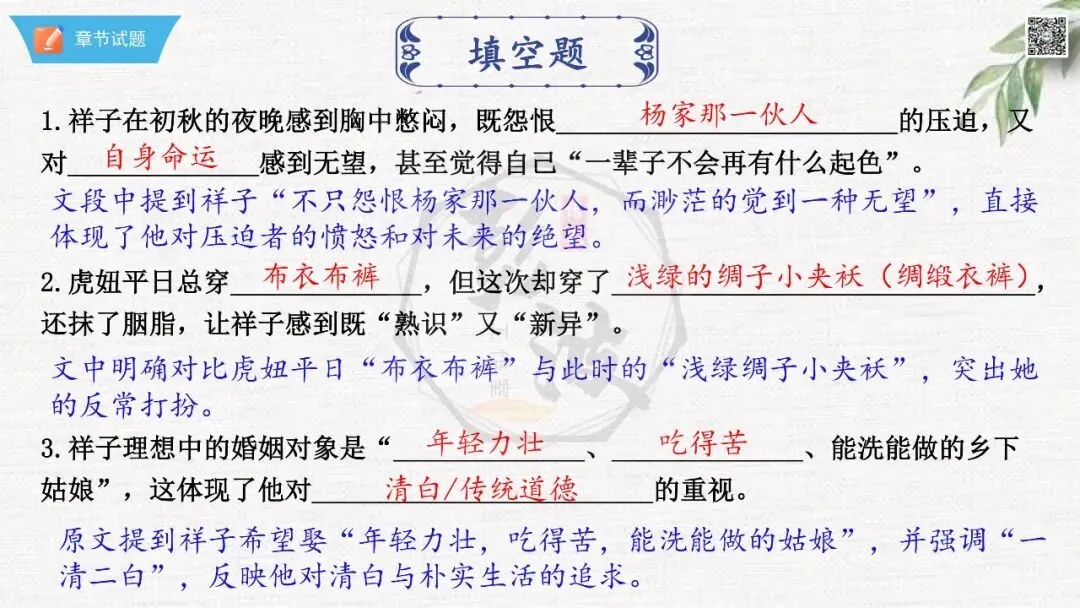 章节试题
填空题
1.祥子在初秋的夜晚感到胸中憋闷，既怨恨杨家那一伙人的压迫，又
对自身命运感到无望，甚至觉得自己“一辈子不会再有什么起色”。
文段中提到祥子“不只怨恨杨家那一伙人，而渺茫的觉到一种无望”，直接
体现了他对压迫者的愤怒和对未来的绝望。
2.虎妞平日总穿布衣布裤，但这次却穿了浅绿的绸子小夹袄（绸缎衣裤），
还抹了胭脂，让祥子感到既“熟识”又“新异”。
文中明确对比虎妞平日“布衣布裤”与此时的“浅绿绸子小夹袄”，突出她
的反常打扮。
3.祥子理想中的婚姻对象是“年轻力壮、吃得苦、能洗能做的乡下
姑娘”，这体现了他对清白/传统道德的重视。
原文提到祥子希望娶“年轻力壮，吃得苦，能洗能做的姑娘”，并强调“一
清二白”，反映他对清白与朴实生活的追求。